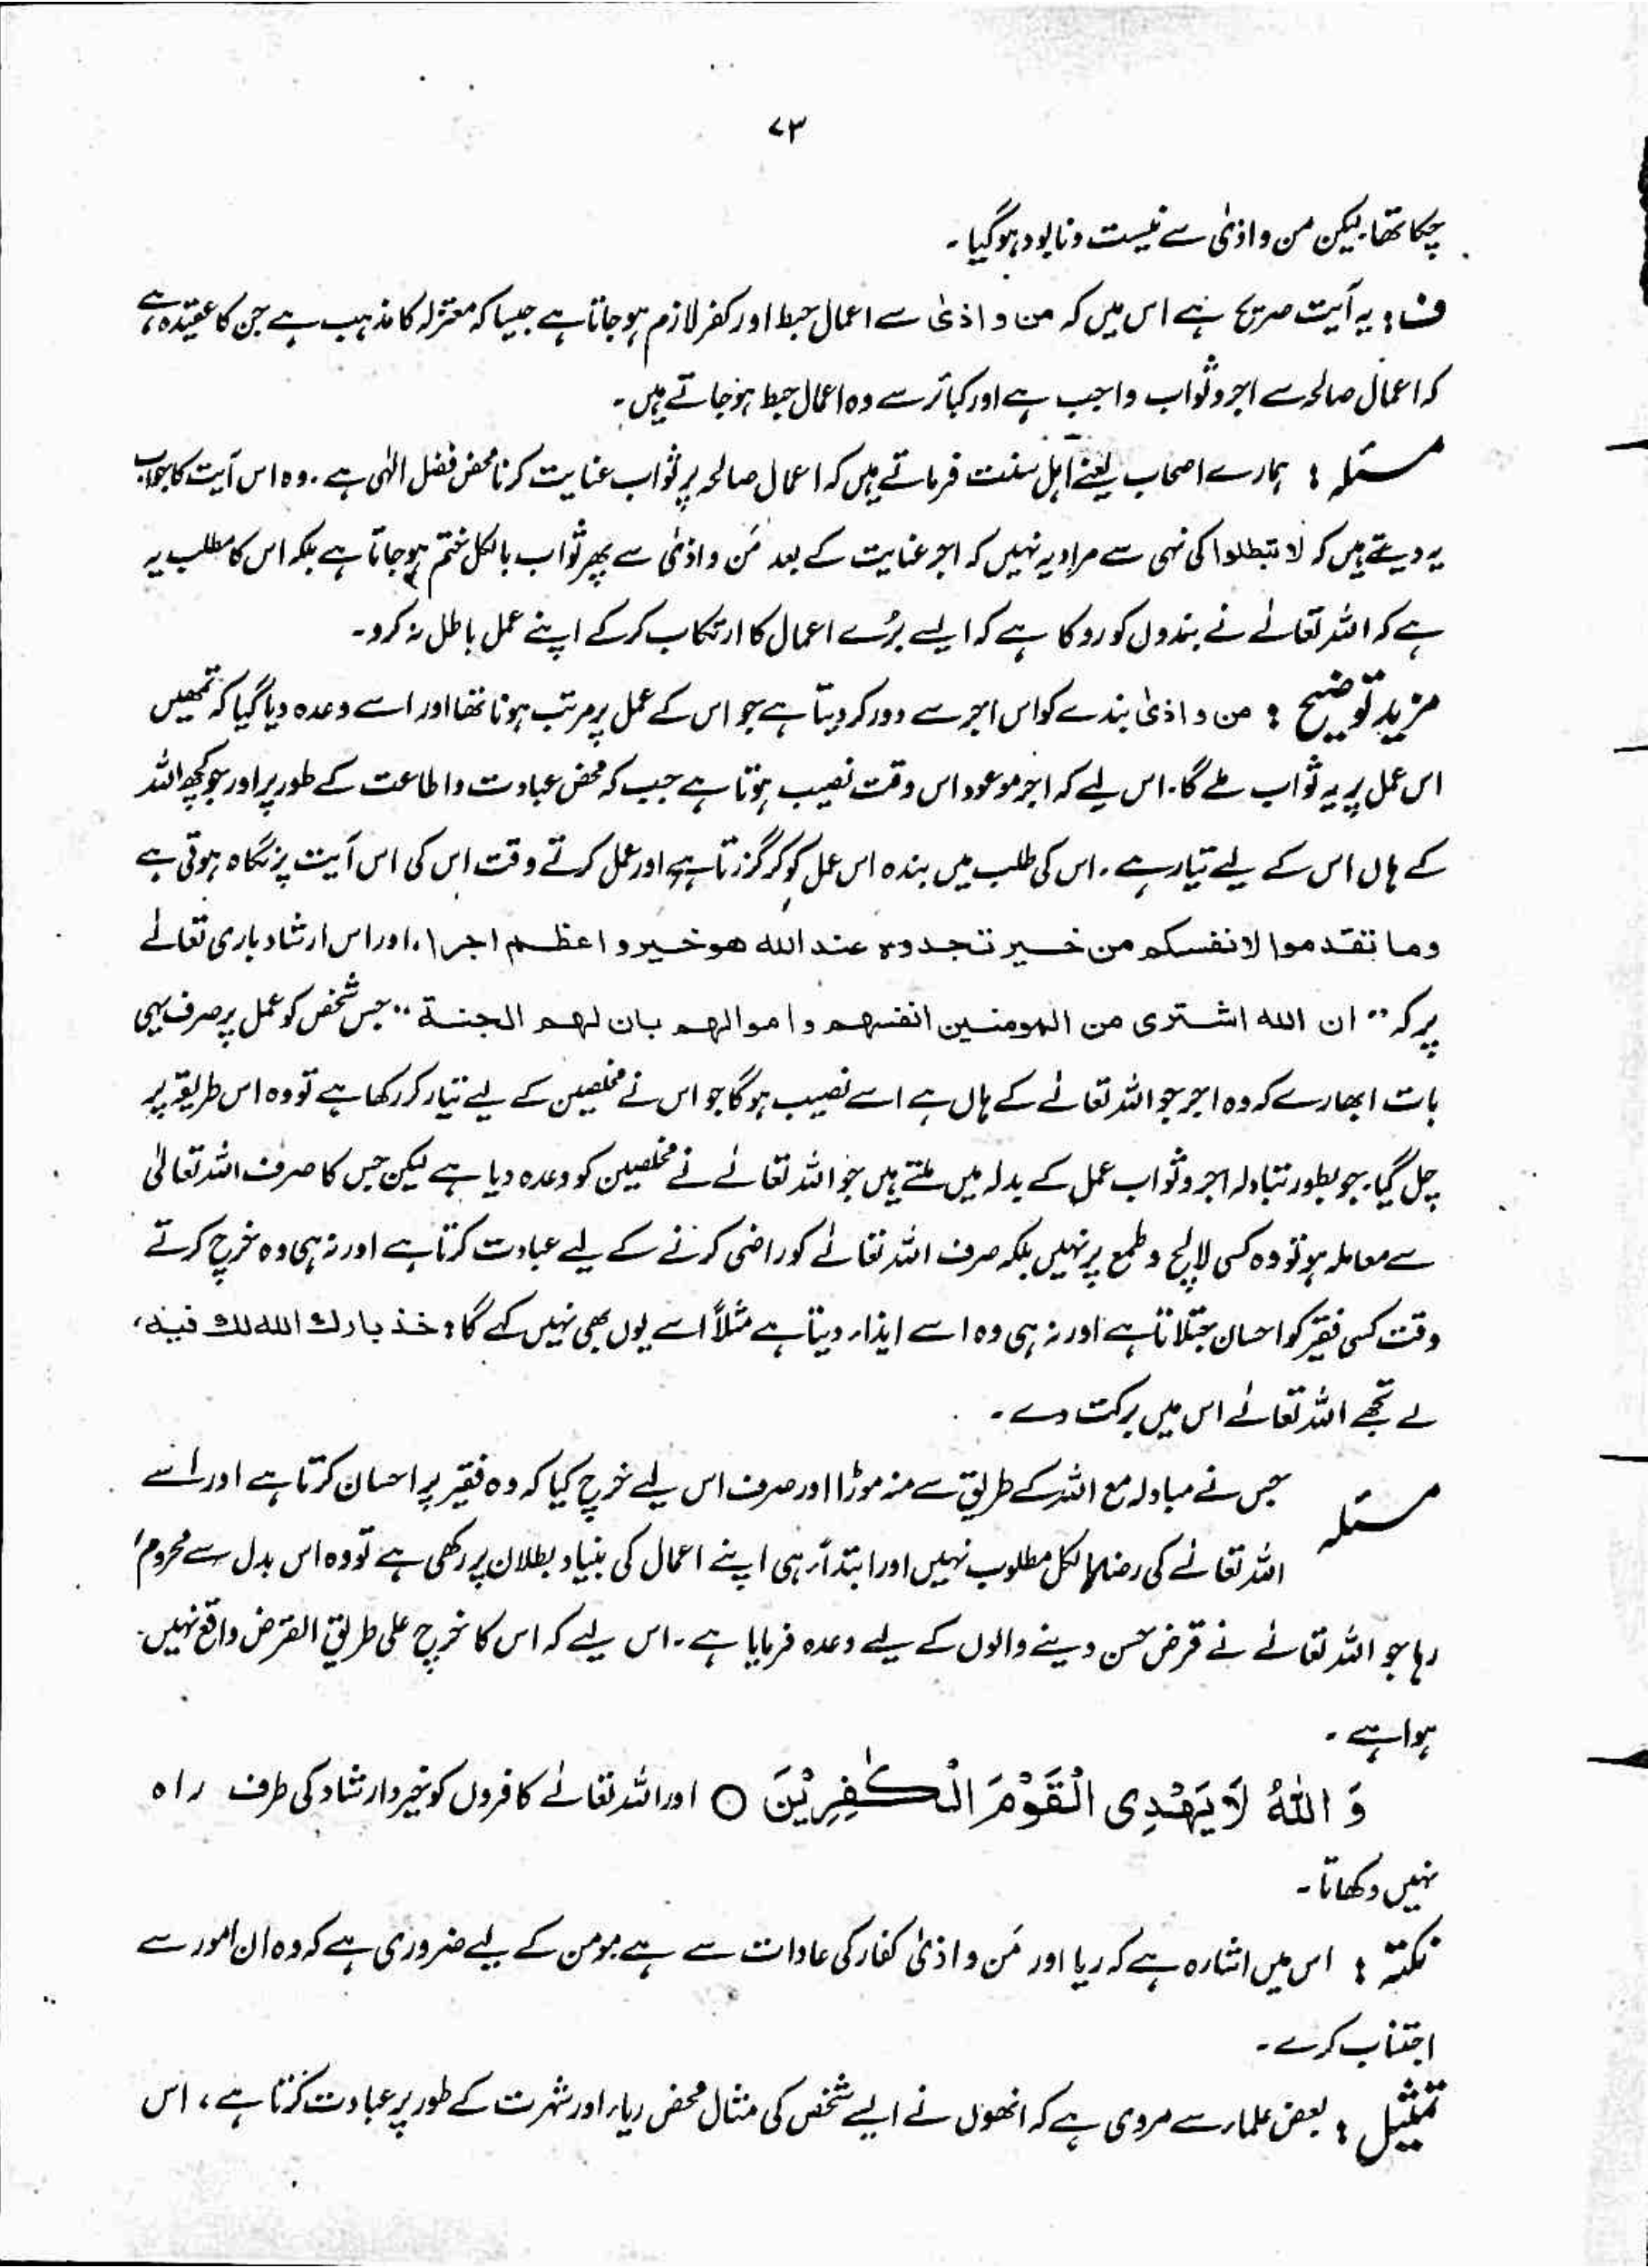 ۷۳
چکا تھا لیکن من و اذیٰ سے نیست و نابود ہوگیا۔
ف : یہ آیت صریح ہے اس میں کہ من و اذیٰ سے اعمال حبط اور کفر لازم ہو جاتا ہے جیسا کہ معتزلہ کا مذہب ہے جن کا عقیدہ ہے،
کہ اعمال صالحہ سے اجر و ثواب واجب ہے اور کبائر سے وہ اعمال حبط ہو جاتے ہیں۔
مسئلہ : ہمارے اصحاب یعنے اہل سنت فرماتے ہیں کہ اعمال صالحہ پر ثواب عنایت کرنا محض فضل الٰہی ہے۔ وہ اس آیت کا جواب
یہ دیتے ہیں کہ لا تبطلوا کی نہی سے مراد یہ نہیں کہ اجر عنایت کے بعد مَن و اذیٰ سے پھر ثواب بالکل ختم ہو جاتا ہے بلکہ اس کا مطلب یہ
ہے کہ اللہ تعالےٰ نے بندوں کو روکا ہے کہ ایسے بُرے اعمال کا ارتکاب کرکے اپنے عمل باطل نہ کرو۔
مزید توضیح : من و اذیٰ بندے کو اس اجر سے دور کر دیتا ہے جو اس کے عمل پر مرتب ہونا تھا اور اسے وعدہ دیا گیا کہ تمھیں
اس عمل پر یہ ثواب ملے گا۔ اس لیے کہ اجر موعود اس وقت نصیب ہوتا ہے جب کہ محض عبادت و اطاعت کے طور پر اور جو کچھ اللہ
کے ہاں اس کے لیے تیار ہے۔ اس کی طلب میں بندہ اس عمل کو کر گزرتا ہے اور عمل کرتے وقت اس کی اس آیت پر نگاہ ہوتی ہے
وما تقدموا لانفسكم من خير تجدوه عند الله هو خير و اعظم اجرا، اور اس ارشاد باری تعالےٰ
پر کہ " ان الله اشترى من المومنين انفسهم و اموالهم بان لهم الجنة " جس شخص کو عمل پر صرف یہی
بات ابھارے کہ وہ اجر جو اللہ تعالےٰ کے ہاں ہے اسے نصیب ہوگا جو اس نے مخلصین کے لیے تیار کر رکھا ہے تو وہ اس طریقہ پر
چل گیا۔ جو بطور تبادلہ اجر و ثواب عمل کے بدلہ میں ملتے ہیں جو اللہ تعالےٰ نے مخلصین کو وعدہ دیا ہے لیکن جس کا صرف اللہ تعالیٰ
سے معاملہ ہو تو وہ کسی لالچ و طمع پر نہیں بلکہ صرف اللہ تعالےٰ کو راضی کرنے کے لیے عبادت کرتا ہے اور نہ ہی وہ خرچ کرتے
وقت کسی فقیر کو احسان جتلاتا ہے اور نہ ہی وہ اسے ایذاء دیتا ہے مثلاً اسے یوں بھی نہیں کہے گا : خذ بارك الله لك فيه،
لے تجھے اللہ تعالےٰ اس میں برکت دے۔
مسئلہ جس نے مبادلہ مع اللہ کے طریق سے منہ موڑا اور صرف اس لیے خرچ کیا کہ وہ فقیر پر احسان کرتا ہے اور اسے
اللہ تعالےٰ کی رضا بالکل مطلوب نہیں اور ابتداءً ہی اپنے اعمال کی بنیاد بطلان پر رکھی ہے تو وہ اس بدل سے محروم
رہا جو اللہ تعالےٰ نے قرض حسن دینے والوں کے لیے وعدہ فرمایا ہے۔ اس لیے کہ اس کا خرچ علی طریق القرض واقع نہیں
ہوا ہے۔
وَ اللّٰهُ لَا يَهْدِى الْقَوْمَ الْكٰفِرِيْنَ ○ اور اللہ تعالےٰ کافروں کو خیر و ارشاد کی طرف راہ
نہیں دکھاتا۔
نکتہ : اس میں اشارہ ہے کہ ریا اور مَن و اذیٰ کفار کی عادات سے ہے مومن کے لیے ضروری ہے کہ وہ ان امور سے
اجتناب کرے۔
تمثیل : بعض علماء سے مروی ہے کہ انھوں نے ایسے شخص کی مثال محض ریاء اور شہرت کے طور پر عبادت کرتا ہے، اس